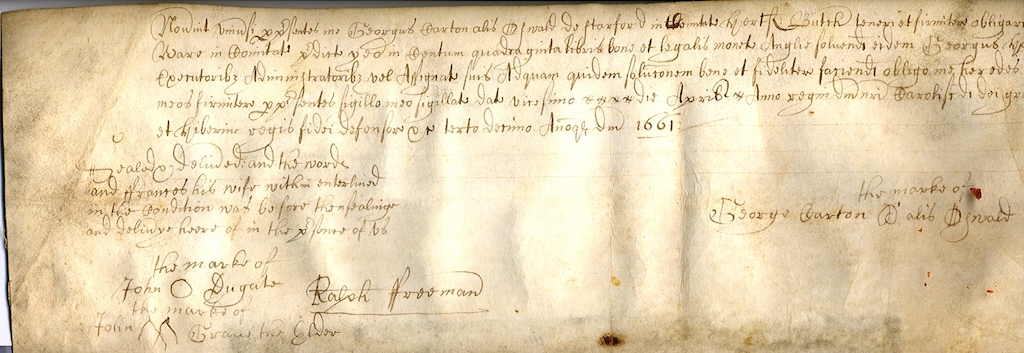 Noverint universi p psentes me Georgus Carton alis Oswald de Starford in Comitate Hertf. Butch teneri et firmitere obligari
Ware in Comitat pdict yeo in Centum quadraginta libris bone et legalis monet Anglie solvend eidem Georgus
Executoribz Administratoribz vel Assignat suis Adquam quidem soluconem bene et fidelitere faciend obligo me heredes
meos firmitere p psentes sigillo meo sigillat dat vicesimo die Aprill Anno regni dm nri Caroli scdi dei gra
et Hiberniae regis fidei defensore &c terto decimo Anoqz dm 1661:
Sealed & delivded: and the words
and ffrances his wife within enterlined
in the Condition was before thensealinge
and delivye heere of in the psence of us
the marke of
John O Dugate
Ralph ffreeman
the marke of
John Grave the Elder
the marke of
George Carton C alis Oswald